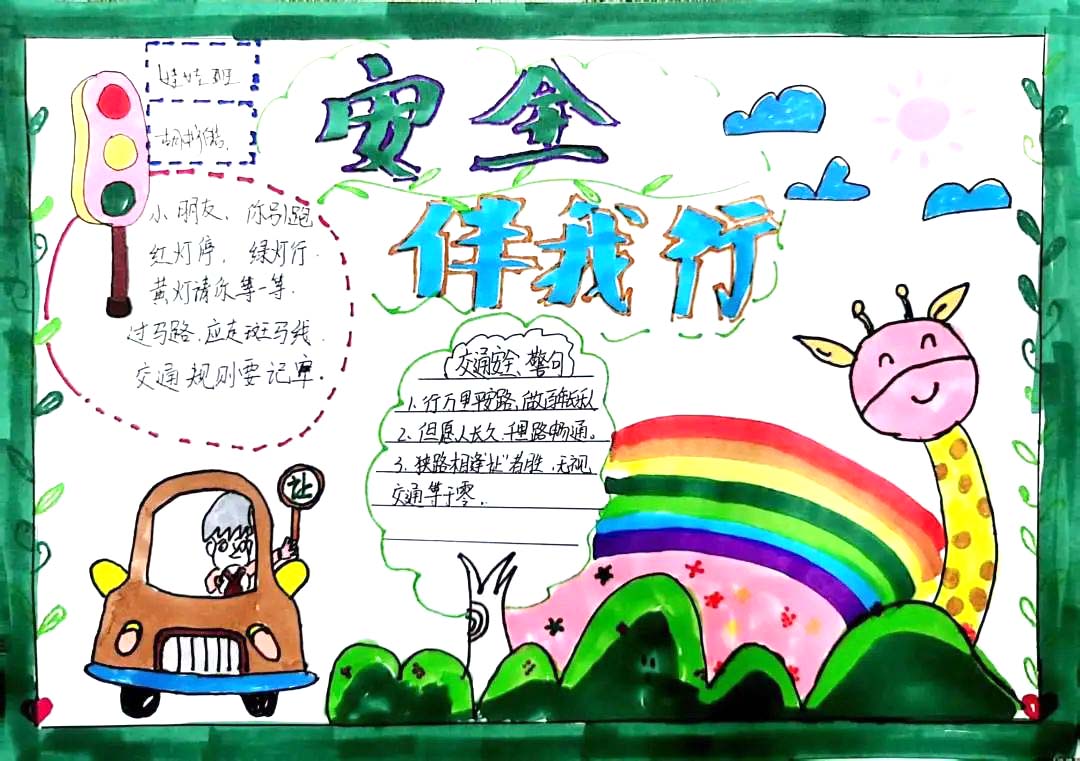 娃娃班
安全
伴我行
小朋友，你别跑
红灯停，绿灯行.
黄灯请你等一等.
过马路.应走斑马线.
交通规则要记牢.
交通安全、警句
1、行万里平安路、做百年长乐
2、但愿人长久、千里路畅通。
3、狭路相逢“让”者胜、无视
交通等于零.
让